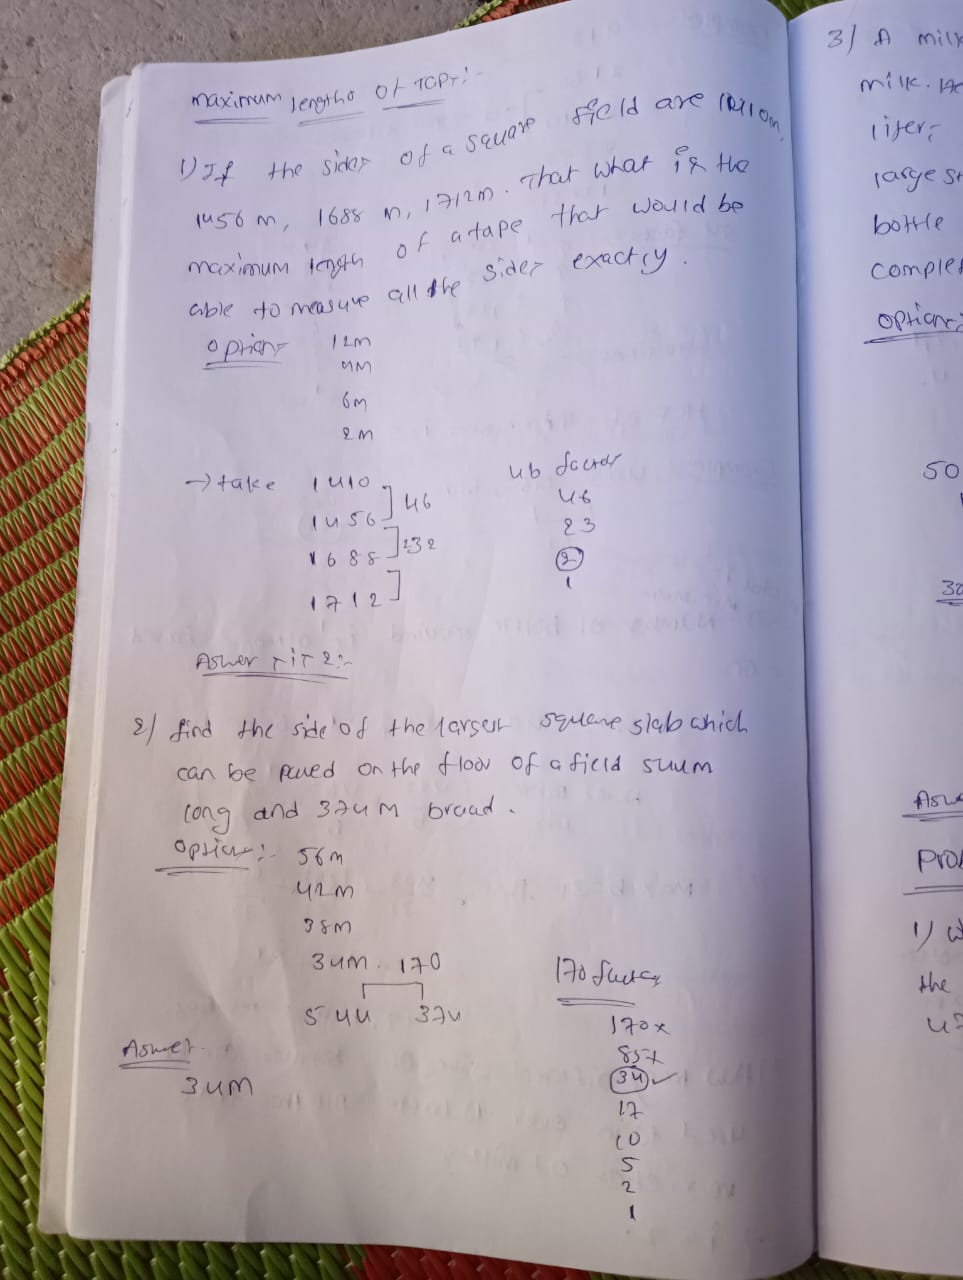 maximum lengths of TCPT:-
1) If the sides of a square field are 1410m,
1456 m, 1688 m, 1712m. That what is the
maximum length of a tape that would be
able to measure all the sides exactly.
options 12m
4m
6m
2m
→ take 1410
1456 ] 46
1688 ] 232
1712 ]
46 factors
46
23
2
1
Aswer TiT 2:-
2) find the side of the largest square slab which
can be paved on the floor of a field 544m
long and 374m broad.
Option:- 56m
42m
38m
34m. 170
544 374
Aswer
34m
170 factors
170x
85x
34 ✓
17
10
5
2
1
3) A milk
milk.
liter,
largest
bottle
comple
options
50
Asw
Pro
1) w
the